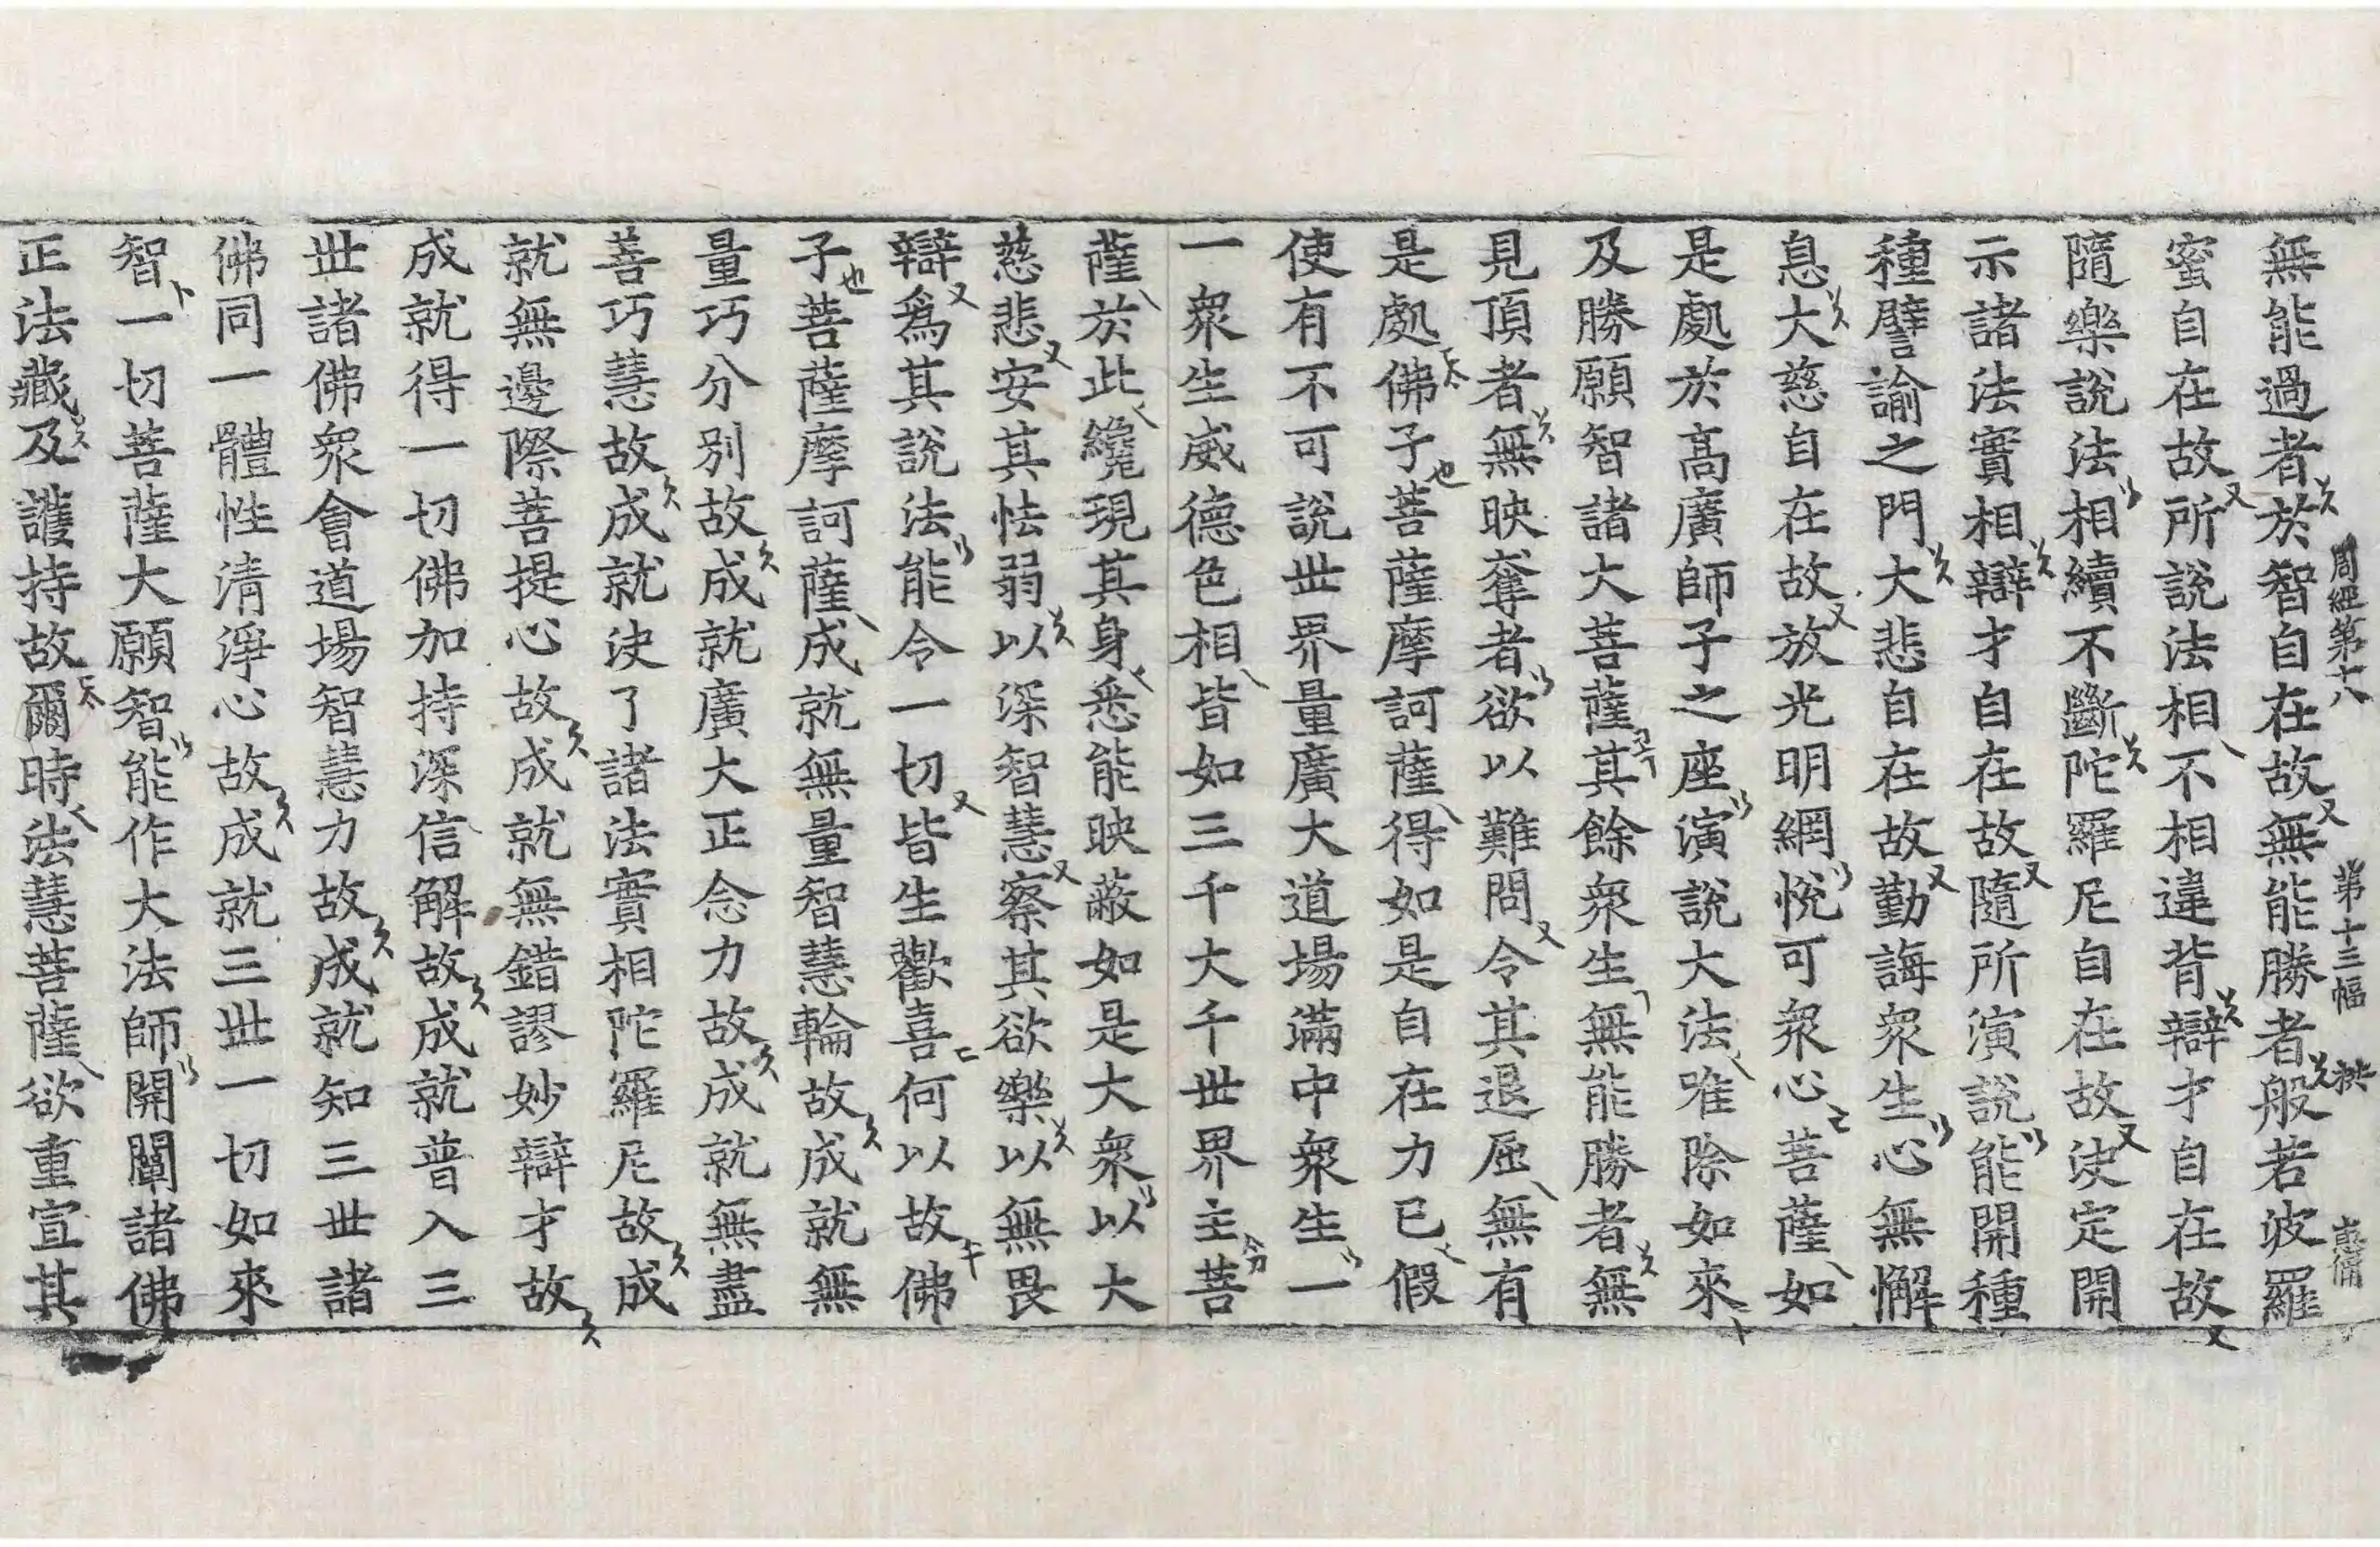 無能過者於智自在故無能勝者般若波羅
周經第十八 第十三幅
蜜自在故所說法相不相違背辯才自在故
隨樂說法相續不斷陀羅尼自在故決定開
示諸法實相辯才自在故隨所演說能開種
種譬諭之門大悲自在故勤誨衆生心無懈
息大慈自在故放光明網悅可衆心菩薩如
是處於高廣師子之座演說大法唯除如來
及勝願智諸大菩薩其餘衆生無能勝者無
見頂者無映奪者欲以難問令其退屈無有
是處佛子菩薩摩訶薩得如是自在力已假
使有不可說世界量廣大道場滿中衆生一
一衆生威德色相皆如三千大千世界主菩
薩於此纔現其身悉能映蔽如是大衆以大
慈悲安其怯弱以深智慧察其欲樂以無畏
辯爲其說法能令一切皆生歡喜何以故佛
子菩薩摩訶薩成就無量智慧輪故成就無
量巧分別故成就廣大正念力故成就無盡
善巧慧故成就決了諸法實相陀羅尼故成
就無邊際菩提心故成就無錯謬妙辯才故
成就得一切佛加持深信解故成就普入三
世諸佛衆會道場智慧力故成就知三世諸
佛同一體性清淨心故成就三世一切如來
智一切菩薩大願智能作大法師開闡諸佛
正法藏及護持故爾時法慧菩薩欲重宣其